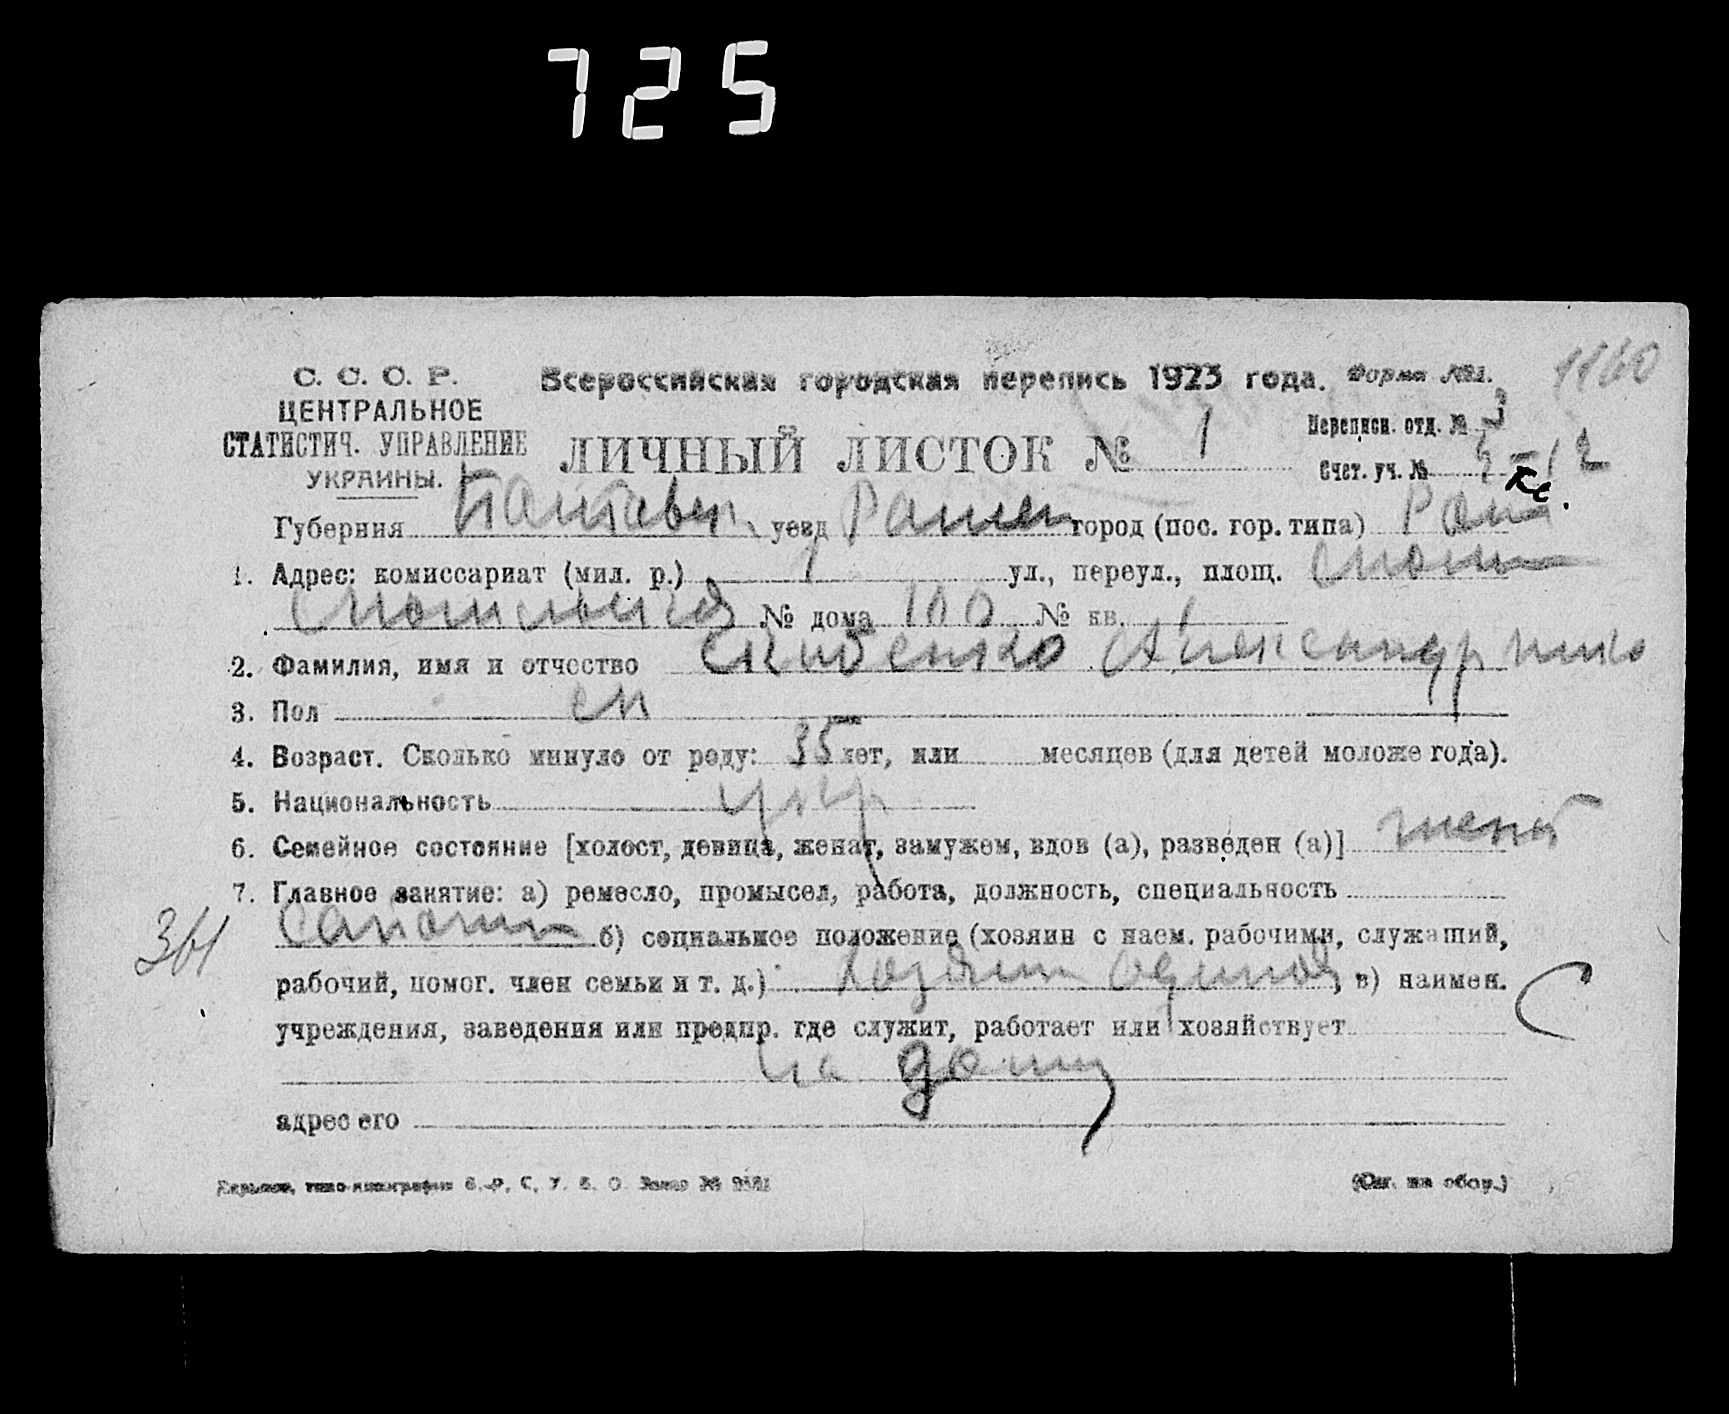 725
С. С. С. Р.
ЦЕНТРАЛЬНОЕ
СТАТИСТИЧ. УПРАВЛЕНИЕ
УКРАИНЫ.
Всероссийская городская перепись 1923 года. Форма №1. 1160
ЛИЧНЫЙ ЛИСТОК № 1
Переписн. отд. № 3
Счет. уч. № 12
Губерния Полтавск уезд Ромен город (пос. гор. типа) Ром
1. Адрес: комиссариат (мил. р.) 1 ул., переул., площ.
№ дома 100 № кв. 1
2. Фамилия, имя и отчество Скибенко Александр
3. Пол м
4. Возраст. Сколько минуло от роду: 35 лет, или месяцев (для детей моложе года).
5. Национальность укр
6. Семейное состояние [холост, девица, женат, замужем, вдов (а), разведен (а)] женат
7. Главное занятие: а) ремесло, промысел, работа, должность, специальность
361 сапожн б) социальное положение (хозяин с наем. рабочими, служащий,
рабочий, помог. член семьи и т. д.) хозяин один , в) наимен.
учреждения, заведения или предпр. где служит, работает или хозяйствует
на дому
адрес его
(См. на обор.)